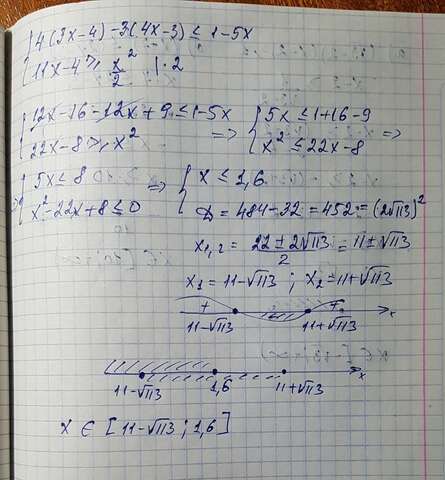 4(3x-4)-3(4x-3) ≤ 1-5x
11x-4 ≥ x²/2 | · 2
12x-16-12x+9 ≤ 1-5x => 5x ≤ 1+16-9
22x-8 ≥ x² x² ≤ 22x-8 =>
5x ≤ 8 => x ≤ 1,6
=> x²-22x+8 ≤ 0 D = 484-32 = 452 = (2√113)²
x₁,₂ = (22 ± 2√113)/2 = 11 ± √113
x₁ = 11-√113 ; x₂ = 11+√113
+ - + x
11-√113 11+√113
x
11-√113 1,6 11+√113
x ∈ [11-√113 ; 1,6]